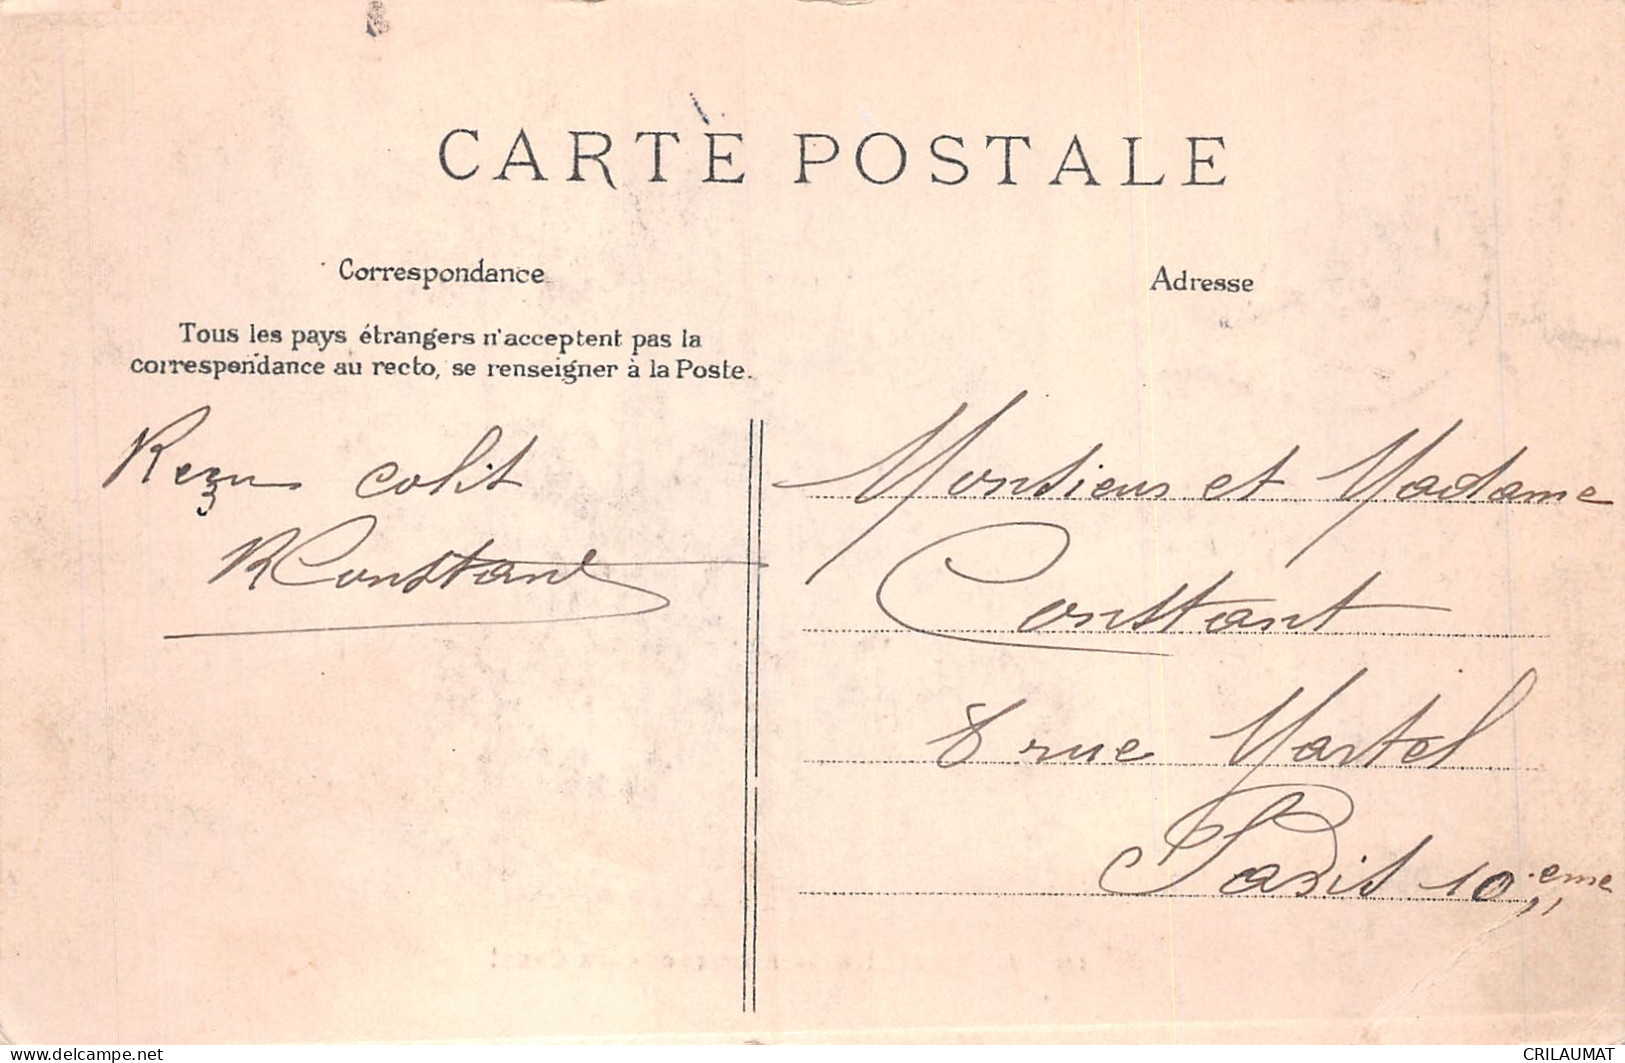 CARTE POSTALE
Correspondance
Tous les pays étrangers n'acceptent pas la
correspondance au recto, se renseigner à la Poste.
colis
R Constant
Adresse
Monsieur et Madame
Constant
8 rue Martel
Paris 10eme
delcampe.net
CRILAUMAT